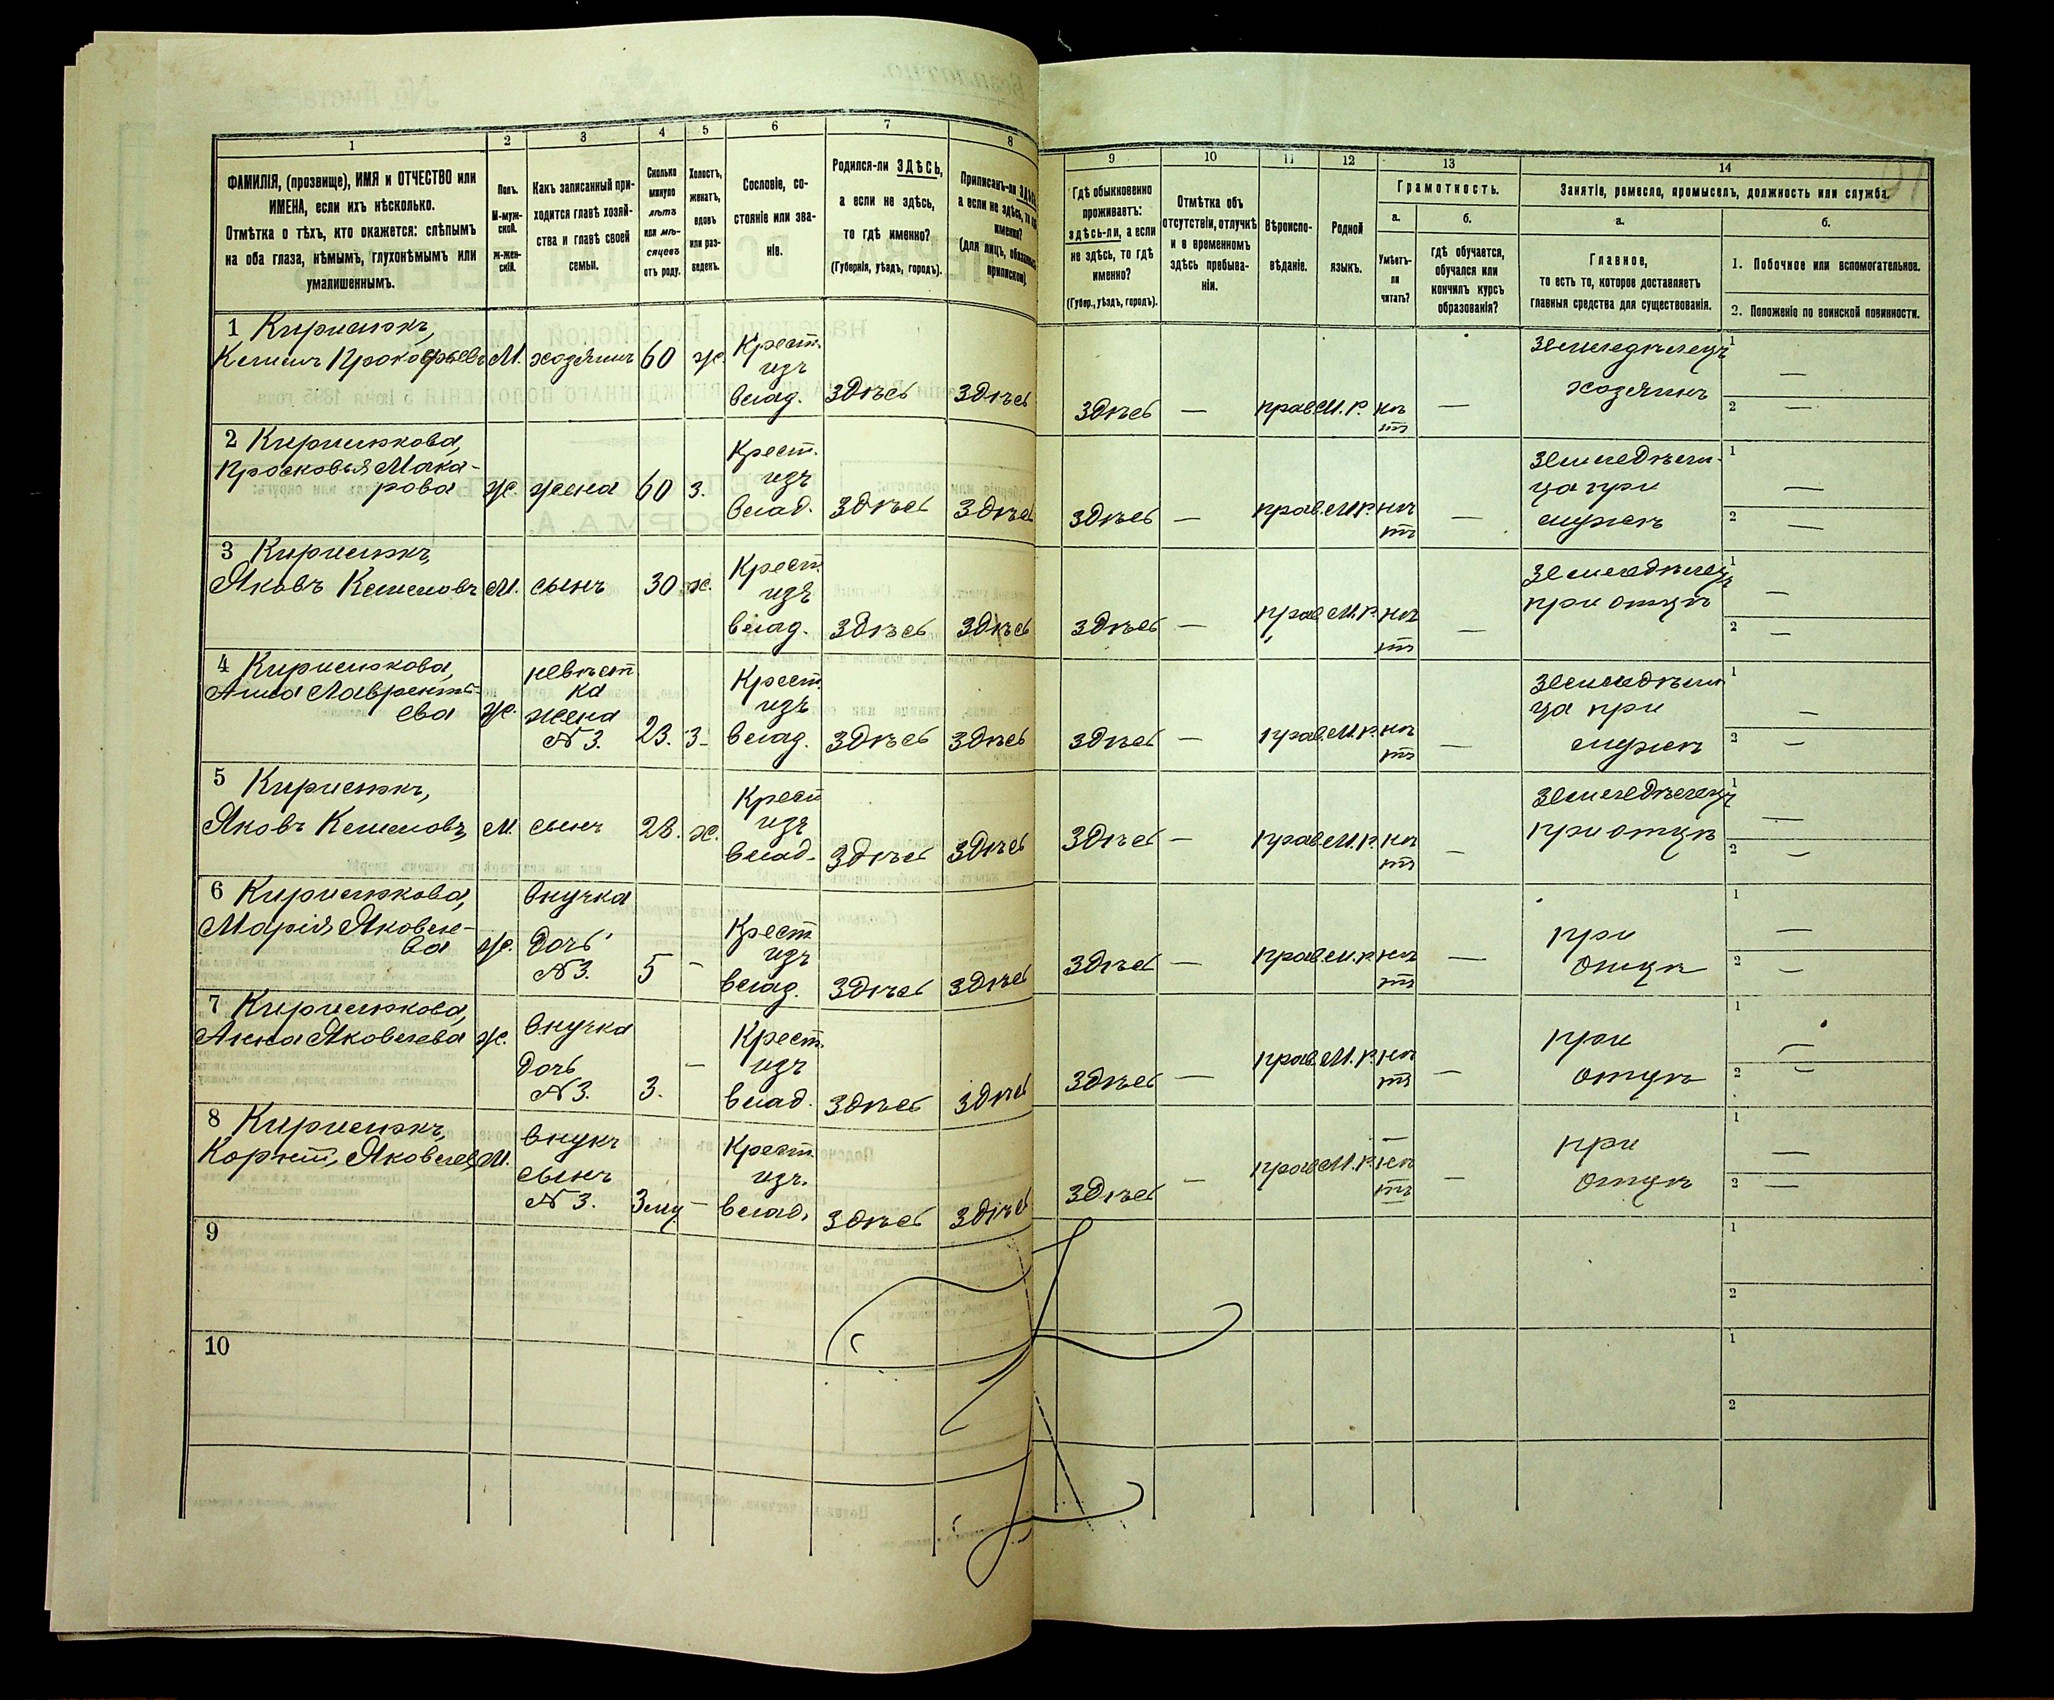 1
2
3
4
5
6
7
8
ФАМИЛІЯ, (прозвище), ИМЯ и ОТЧЕСТВО или
ИМЕНА, если ихъ нѣсколько.
Отмѣтка о тѣхъ, кто окажется: слѣпымъ
на оба глаза, нѣмымъ, глухонѣмымъ или
умалишеннымъ.
Полъ.
М-муж-
ской.
Ж-жен-
скій.
Какъ записанный при-
ходится главѣ хозяй-
ства и главѣ своей
семьи.
Сколько
минуло
лѣтъ
или мѣ-
сяцевъ
отъ роду.
Холостъ,
женатъ,
вдовъ
или раз-
веденъ.
Сословіе, со-
стояніе или зва-
ніе.
Родился-ли ЗДѢСЬ,
а если не здѣсь,
то гдѣ именно?
(Губернія, уѣздъ, городъ).
Приписанъ-ли
а если не здѣсь, то
именно?
(для лицъ,
припискою).
1 Кирилюкъ,
М. хозяинъ 60 ж. Крест. изъ влад. здѣсь здѣсь
2 Кирилюкова,
Просковья Мака-
рова ж. жена 60 з. Крест. изъ влад. здѣсь здѣсь
3 Кирилюкъ,
Яковъ М. сынъ 30 ж. Крест. изъ влад. здѣсь здѣсь
4 Кирилюкова,
Анна Лавренть-
ева ж. невѣст
ка
жена
№ 3. 23. з. Крест. изъ влад. здѣсь здѣсь
5 Кирилюкъ,
Яковъ М. сынъ 28. ж. Крест изъ влад. здѣсь здѣсь
6 Кирилюкова,
Марія Яковле-
ва ж. внучка
дочь
№ 3. 5 – Крест изъ влад. здѣсь здѣсь
7 Кирилюкова,
Анна Яковлева ж. внучка
дочь
№ 3. 3. – Крест. изъ влад. здѣсь здѣсь
8 Кирилюкъ,
М. внукъ
сынъ
№ 3. – Крест. изъ. влад. здѣсь здѣсь
9
10
9
10
11
12
13
14
Гдѣ обыкновенно
проживаетъ:
здѣсь-ли, а если
не здѣсь, то гдѣ
именно?
(Губер., уѣздъ, городъ).
Отмѣтка объ
отсутствіи, отлучкѣ
и о временномъ
здѣсь пребыва-
ніи.
Вѣроиспо-
вѣданіе.
Родной
языкъ.
Грамотность.
а.
б.
Умѣетъ-
ли
читать?
гдѣ обучается,
обучался или
кончилъ курсъ
образованія?
Занятіе, ремесло, промыселъ, должность или служба.
а.
б.
Главное,
то есть то, которое доставляетъ
главныя средства для существованія.
1. Побочное или вспомогательное.
2. Положеніе по воинской повинности.
здѣсь – прав. М. Р. нѣ
тъ – земледѣлецъ
хозяинъ 1 – 2 –
здѣсь – прав. М. Р. нѣ
тъ – земледѣли-
ца при
мужѣ 1 – 2 –
здѣсь – прав. М. Р. нѣ
тъ – земледѣлецъ
при отцѣ 1 – 2 –
здѣсь – прав. М. Р. нѣ
тъ – земледѣли
ца при
мужѣ 1 – 2 –
здѣсь – прав. М. Р. нѣ
тъ – земледѣлецъ
при отцѣ 1 – 2 –
здѣсь – прав. М. Р. нѣ
тъ – при
отцѣ 1 – 2 –
здѣсь – прав. М. Р. нѣ
тъ – при
отцѣ 1 – 2 –
здѣсь – прав. М. Р. нѣ
тъ – при
отцѣ 1 – 2 –
1
2
1
2